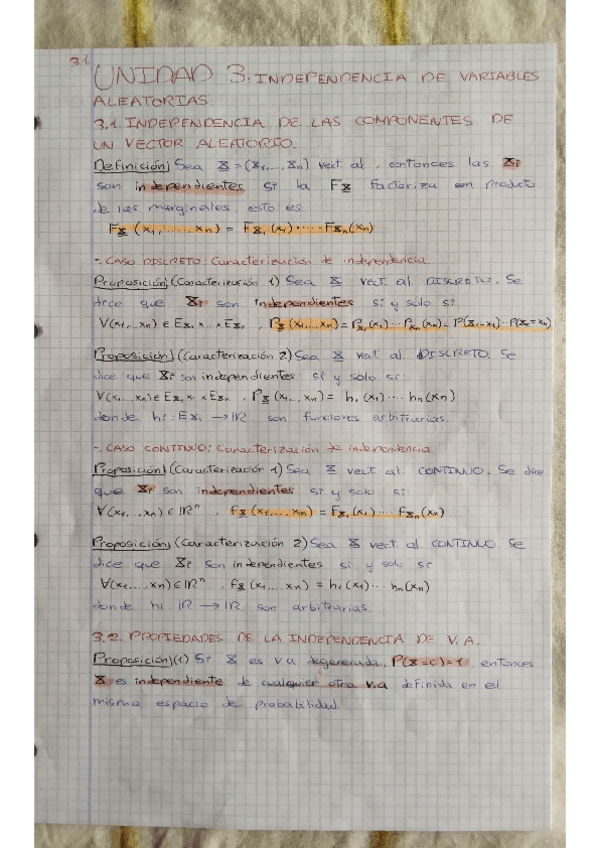 3.1
UNIDAD 3. INDEPENDENCIA DE VARIABLES
ALEATORIAS
3.1. INDEPENDENCIA DE LAS COMPONENTES DE
UN VECTOR ALEATORIO.
Definición) Sea X = (X₁, ..., Xₙ) vect al, entonces las Xᵢ
son independientes si la F_X factoriza en producto
de las marginales, esto es:
F_X (x₁, ..., xₙ) = F_X₁ (x₁) ··· F_Xₙ (xₙ)
-. CASO DISCRETO: Caracterización de independencia
Proposición) (Caracterización 1) Sea X vect al DISCRETO. Se
dice que Xᵢ son independientes si y solo si
∀(x₁, ..., xₙ) ∈ E_X₁ × ... × E_Xₙ, P_X (x₁, ..., xₙ) = P_X₁ (x₁) ··· P_Xₙ (xₙ) = P(X₁=x₁) ··· P(Xₙ=xₙ)
Proposición) (Caracterización 2) Sea X vect al DISCRETO. Se
dice que Xᵢ son independientes si y solo si:
∀(x₁, ..., xₙ) ∈ E_X₁ × ... × E_Xₙ, P_X (x₁, ..., xₙ) = h₁ (x₁) ··· hₙ (xₙ)
donde hᵢ: E_Xᵢ → ℝ son funciones arbitrarias.
-. CASO CONTINUO: Caracterización de independencia
Proposición) (Caracterización 1) Sea X vect al CONTINUO. Se dice
que Xᵢ son independientes si y solo si:
∀(x₁, ..., xₙ) ∈ ℝⁿ, f_X (x₁, ..., xₙ) = f_X₁ (x₁) ··· f_Xₙ (xₙ)
Proposición) (Caracterización 2) Sea X vect al CONTINUO. Se
dice que Xᵢ son independientes si y solo si
∀(x₁, ..., xₙ) ∈ ℝⁿ, f_X (x₁, ..., xₙ) = h₁ (x₁) ··· hₙ (xₙ)
donde hᵢ: ℝ → ℝ son arbitrarias.
3.2. PROPIEDADES DE LA INDEPENDENCIA DE V.A.
Proposición) (1) Si X es v.a degenerada, P(X=c)=1, entonces
X es independiente de cualquier otra v.a definida en el
mismo espacio de probabilidad.